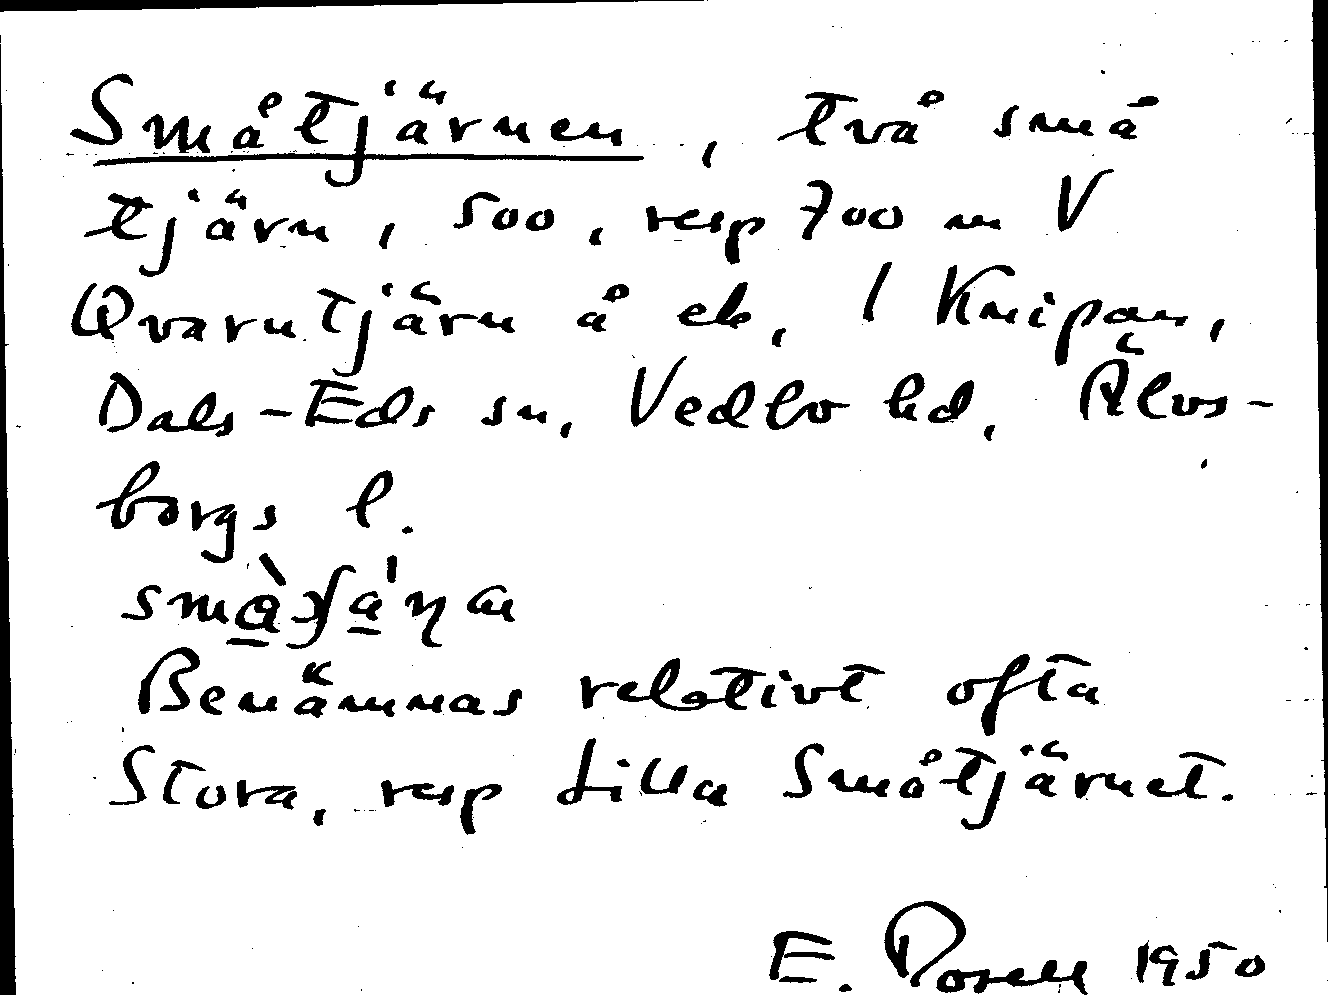 Småtjärnen, två små
tjärn, 500, resp 700 m V
Qvarntjärn å ek, / Knipan,
Dals-Eds sn, Vedbo hd, Älvs-
borgs l.
Benämnas relativt ofta
Stora, resp Lilla Småtjärnet.
E. 1950